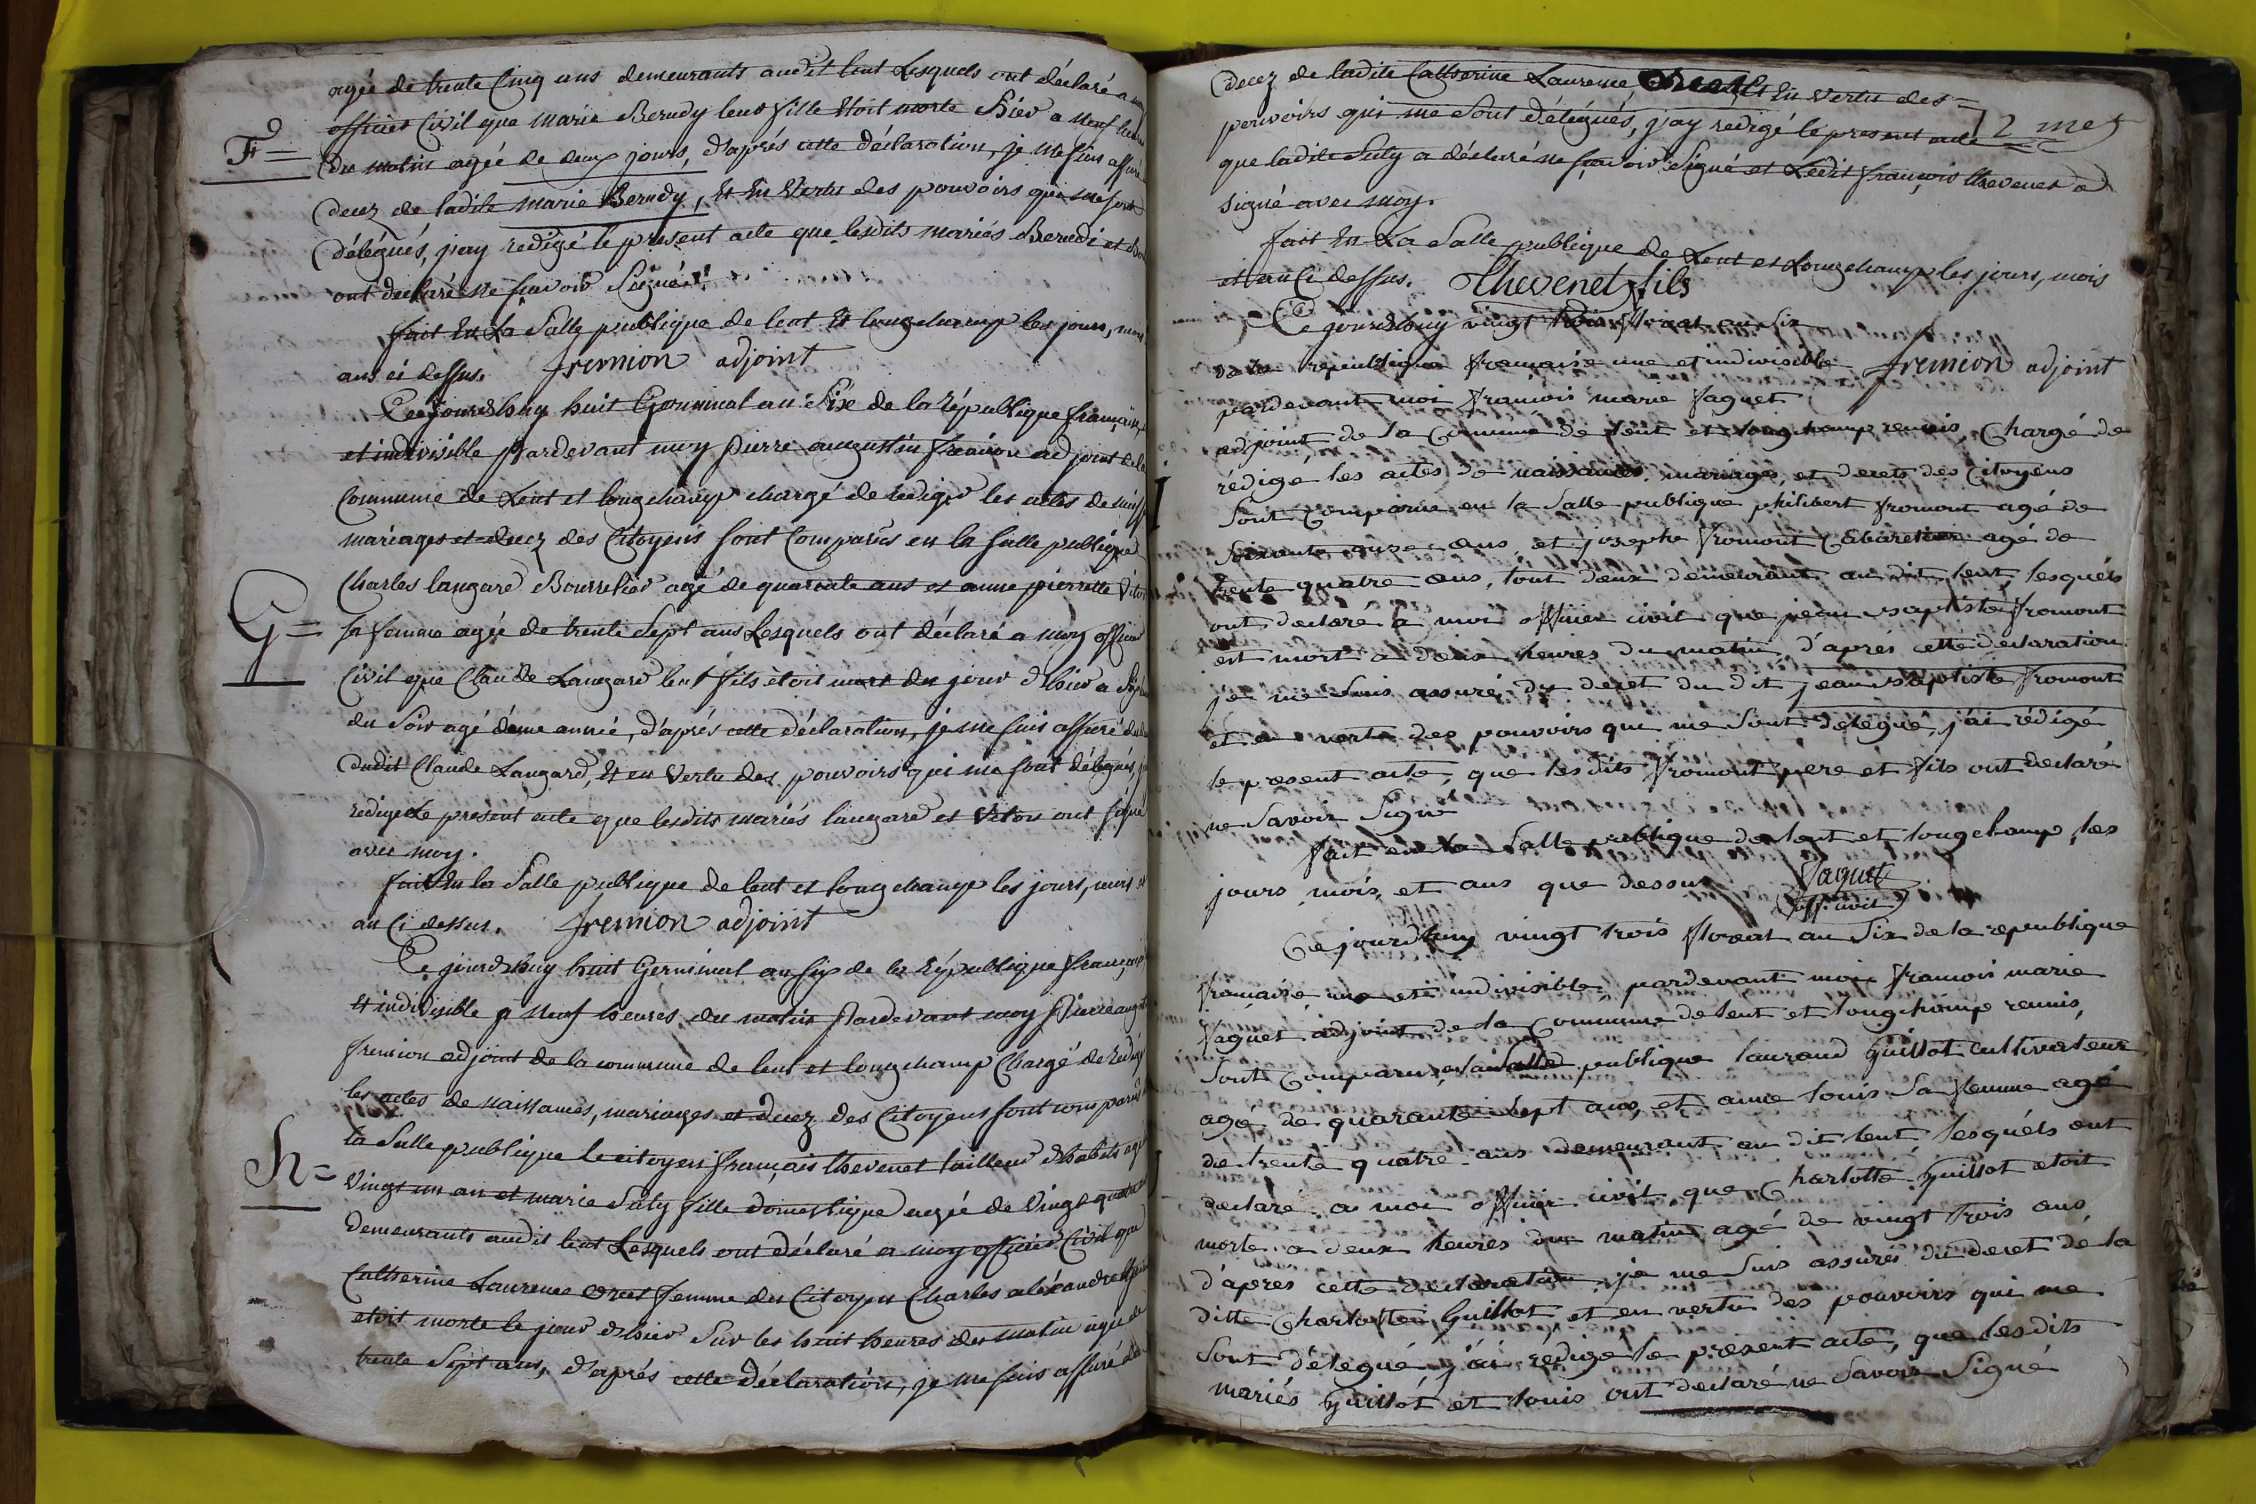 agée de trente Cinq ans demeurants audit lent Lesquels ont déclaré a
officier Civil que marie Berudy leur fille étoit morte Hier a neuf heures
F=
du matin agée de deux jours, d'aprés cette déclaration, je me suis assuré
decez de ladite marie Berudy, Et En Vertu des pouvoirs qui me sont
délégués, j'ay redigé le present acte que lesdits mariés Berudi et
ont declaré ne sçavoir Signé.
fait En La Salle publique de lent Et longchamp les jours, mois
ans ci dessus. fremion adjoint
Cejourdhuy huit Germinal an Six de la République française
et indivisible Pardevant moy pierre augustin fremion adjoint de la
Commune de Lent et longchamp chargé de rediger les actes de naiss
mariages et decez des Citoyens sont Comparus en la salle publique
Charles langard Bourrelier agé de quarante ans et anne pierrette Viton
G=
sa femme agée de trente Sept ans Lesquels ont déclaré a moy officier
Civil que Claude Langard leur fils étoit mort du jour d'hier a
du Soir agé d'une année, d'aprés cette déclaration, je me suis assuré
dudit Claude Langard, Et en Vertu des pouvoirs qui me sont délégués,
redigé Le present acte que lesdits mariés langard et Viton ont signé
avec moy.
fait En la Salle publique de lent et longchamp les jours, mois et
an Ci dessus. fremion adjoint
Ce jourdhuy huit Germinal an six de la République française
Et indivisible à neuf heures du matin Pardevant moy Pierre
fremion adjoint de la commune de lent et longchamp Chargé de Rediger
les actes de naissances, mariages et decez des Citoyens sont comparus
la Salle publique le citoyen françois thevenet tailleur d'habits agé
h=
Vingt un an et marie Suty fille domestique agée de Vingt quatre
demeurants audit lent Lesquels ont déclaré a moy officier Civil que
Catherine Laurence femme du Citoyen Charles aléxandre
étoit morte le jour d'hier Sur les huit heures du matin agée de
trente Sept ans, d'aprés cette déclaration, je me suis assuré du
decez de ladite Catherine Laurence Et En Vertu des
pouvoirs qui me sont délégués, j'ay redigé le present acte
2 me
que ladite Suty a déclaré ne sçavoir Signé et Ledit françois thevenet a
signé avec moy.
fait En La Salle publique de Lent et Longchamp les jours, mois
et an Ci dessus. Thevenet fils
Ce jourdhuy vingt trois floreal an Six
de la republique francaise une et indivisible fremion adjoint
pardevant moi francois marie faguet
adjoint de la Commune de lent et longchamp reunis, Chargé de
rédigé les actes de naissances, mariages, et decets des Citoyens
I
sont Comparue en la Salle publique philibert fromont agé de
Soixante onze ans, et josephe fromont Cabaretier agé de
trente quatre ans, tout deux demeurant au dit lent, lesquéls
ont declaré à moi officier civil que jean baptiste fromont
est mort a deux heures du matin, d'aprés cette declaration
je me suis assuré du decet du dit jean baptiste fromont
et en vertu des pouvoirs qui me sont delegué, j'ai rédigé
le present acte, que les dits fromont pere et fils ont declaré
ne Savoir Signé
fait en la Salle publique de lent et longchamp, les
jours, mois, et ans que dessus faguet
off. civil
Ce jourdhuy vingt trois floreal an Six de la republique
francaise une et indivisible, pardevant moi francois marie
faguet adjoint de la Commune de lent et longchamp reunis,
sont Comparus en la Salle publique laurand Guillot cultivateur
agé de quarante Sept ans, et anne louis Sa femme agé
de trente quatre ans demeurant au dit lent lesquéls ont
declaré a moi officier civil que Charlotte Guillot etoit
morte a deux heures du matin agé de vingt trois ans
d'apres cette declaration, je me suis assurés du decet de la
ditte Charlotte Guillot et en vertu des pouvoirs qui me
sont délegué j'ai rédigé le present acte, que les dits
mariés Guillot et louis ont declaré ne Savoir Signé